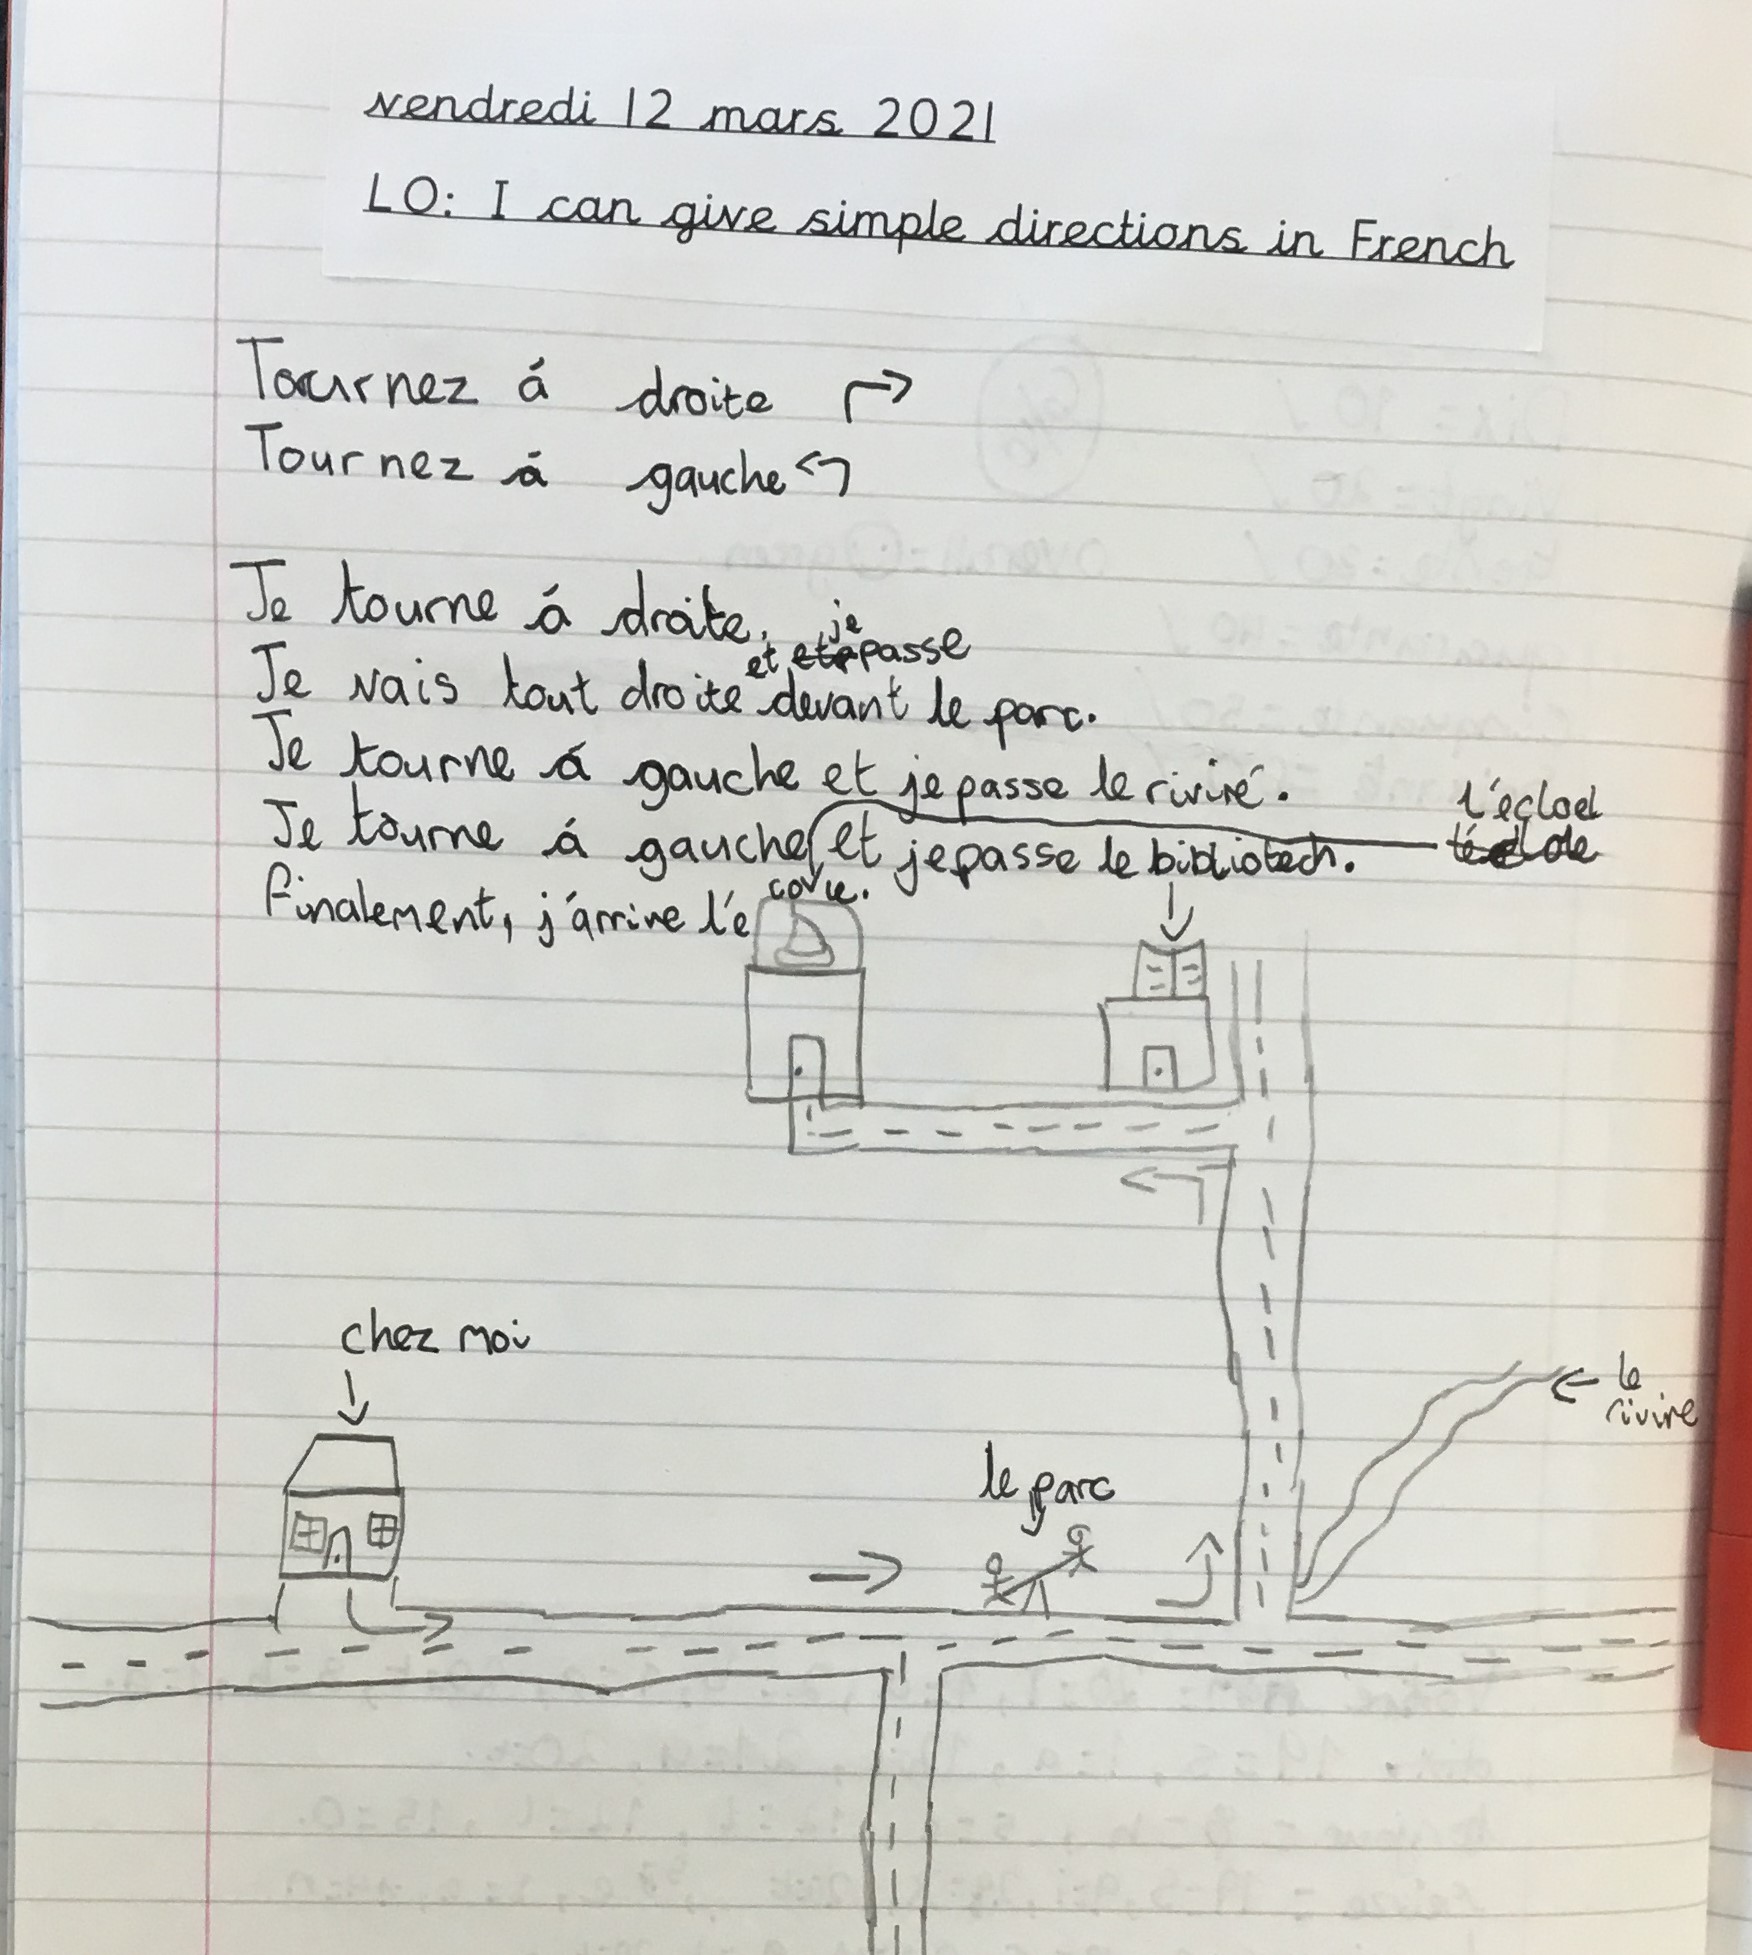 vendredi 12 mars 2021
LO: I can give simple directions in French
Tournez á droite
Tournez á gauche
Je tourne á droite.
je
et passe
Je vais tout droite devant le parc.
Je tourne á gauche et je passe le riviré.
l'écloel
Je tourne á gauche et je passe le bibliotech.
Finalement, j'arrive l'e
chez moi
le
rivire
le parc